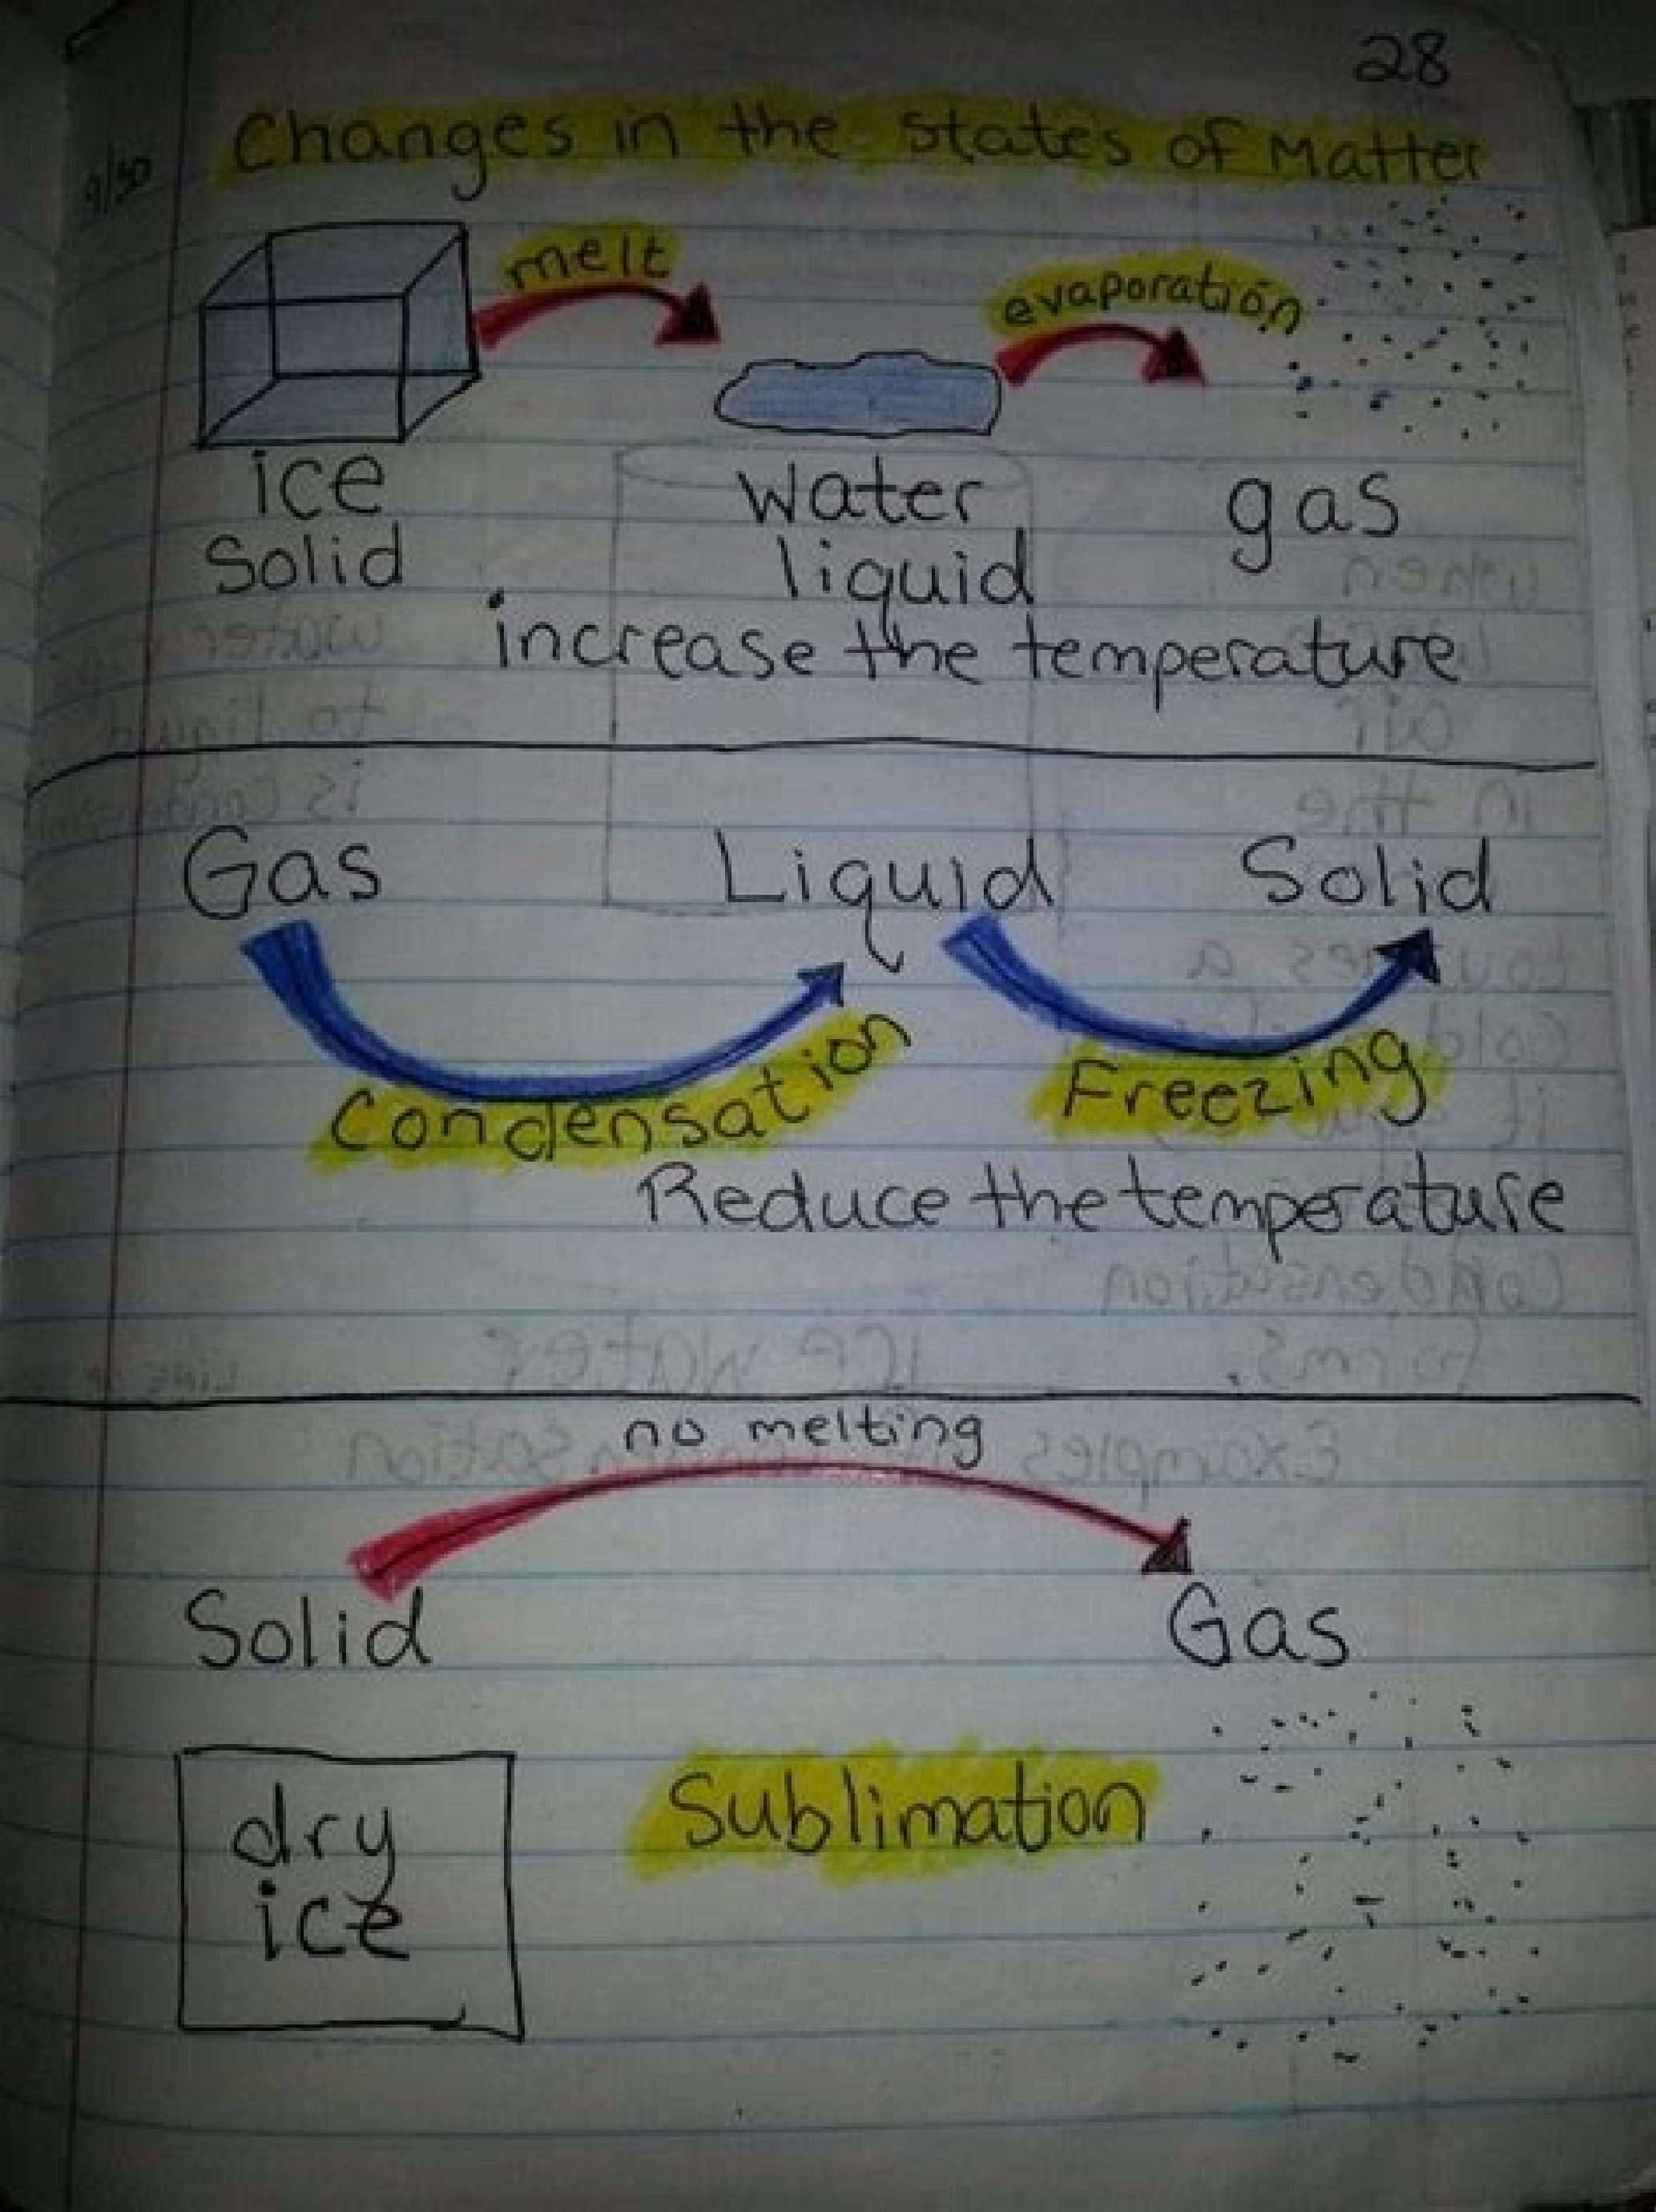 28
9/30
Changes in the states of Matter
melt
evaporation
ice
Solid
water
liquid
gas
increase the temperature
Gas
Liquid
Solid
Condensation
Freezing
Reduce the temperature
no melting
Solid
Gas
dry
ice
Sublimation